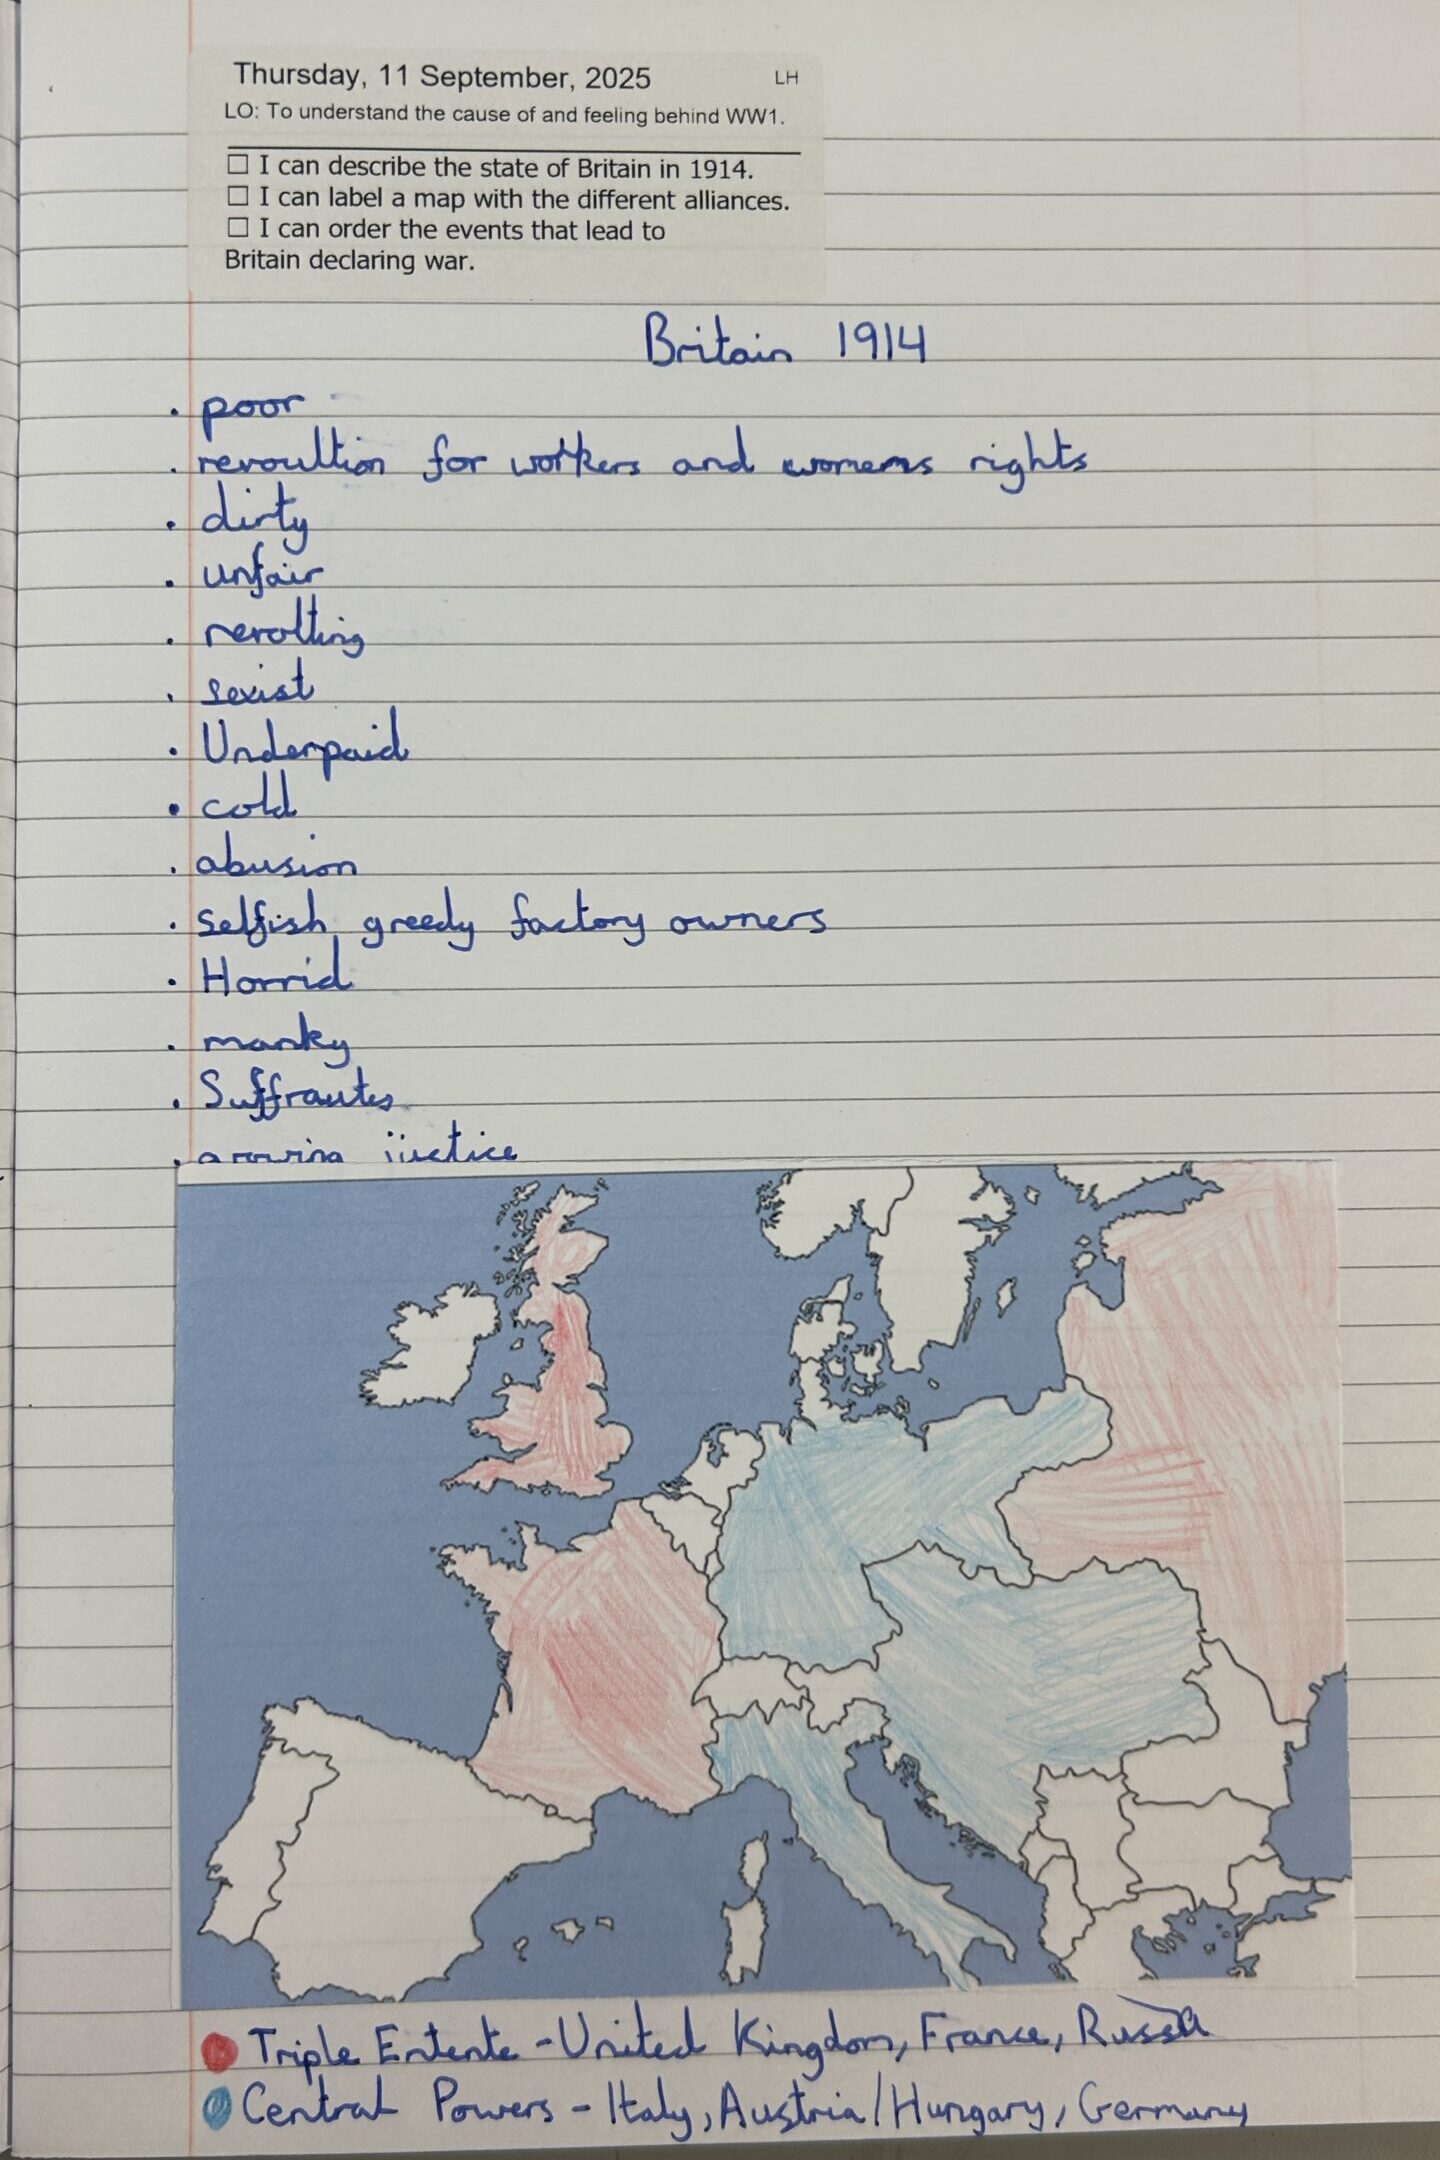 Thursday, 11 September, 2025 LH
LO: To understand the cause of and feeling behind WW1.
☐ I can describe the state of Britain in 1914.
☐ I can label a map with the different alliances.
☐ I can order the events that lead to
Britain declaring war.
Britain 1914
. poor
. revoultion for workers and womens rights
. dirty
. unfair
. revolting
. sexist
. Underpaid
. cold
. abusion
. selfish greedy factory owners
. Horrid
. manky
. Suffrautes
. growing justice
Triple Entente - United Kingdom, France, Russia
Central Powers - Italy, Austria/Hungary, Germany